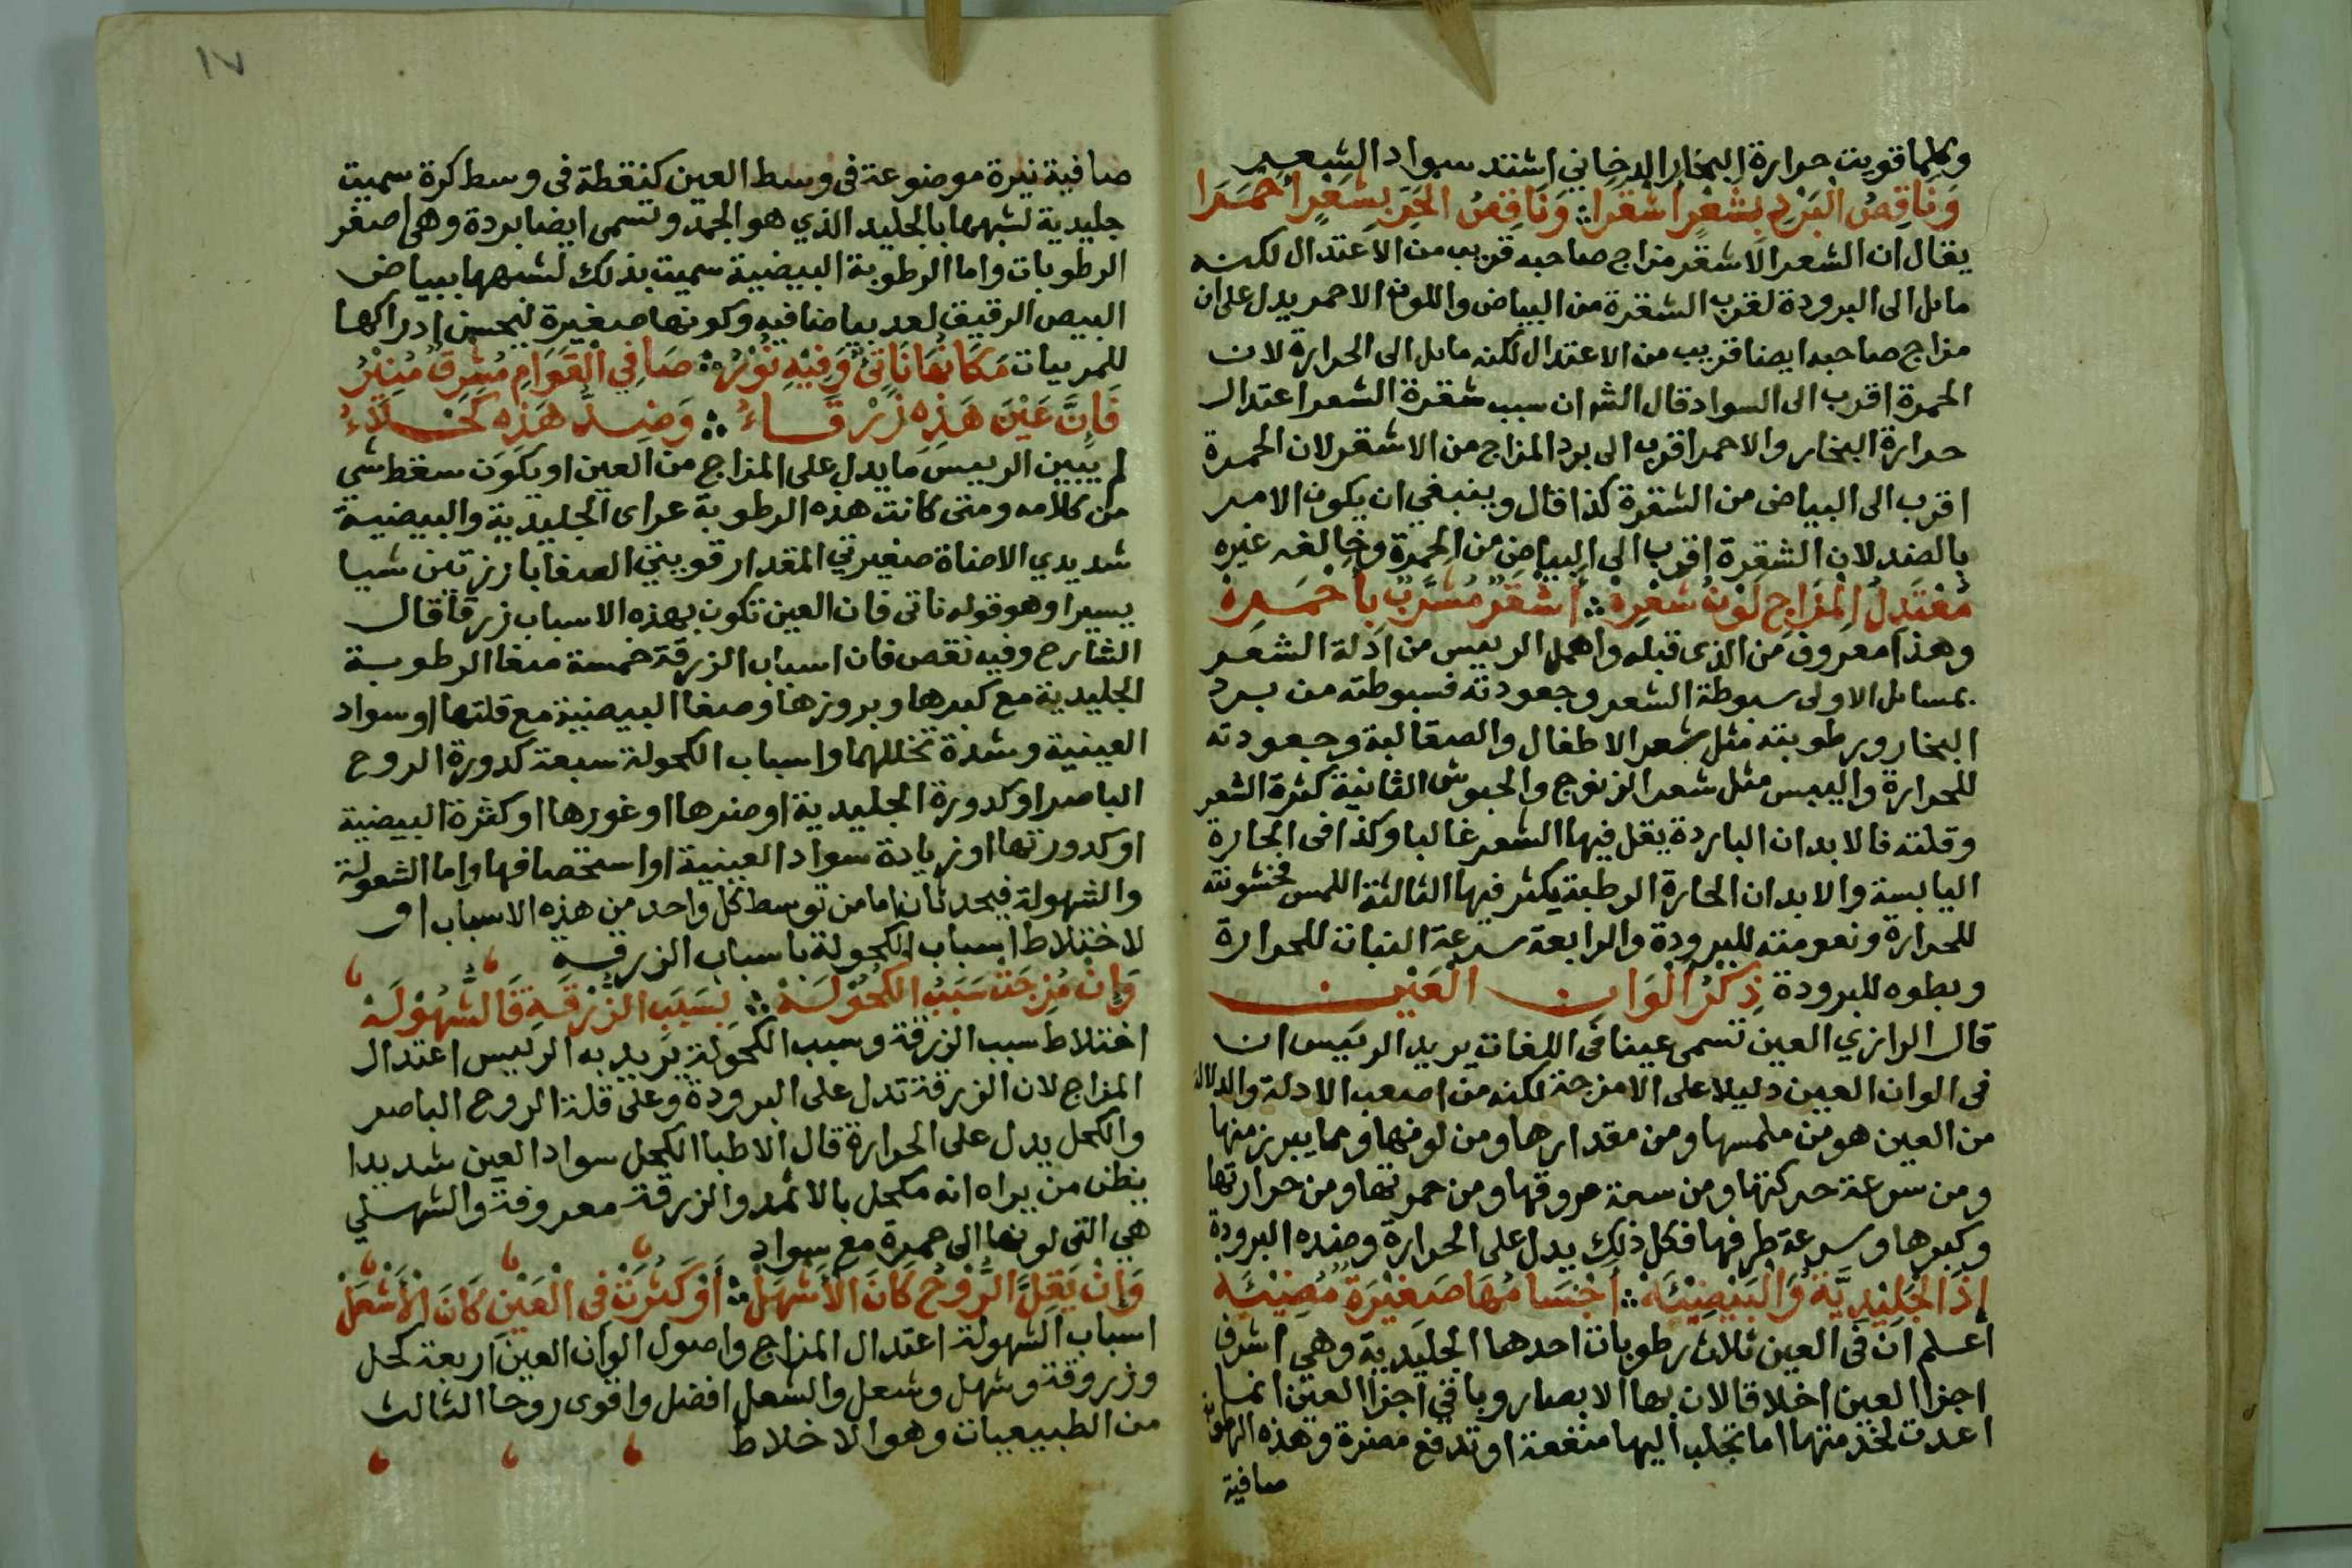 وكلما قويت حرارة البخار الدخاني اشتد سواد الشعر
وَنَاقِصُ الْبَرْدِ بِشَعْرٍ أشْقَرا ∴ وَنَاقِصُ الحَرِّ بِشَعْرٍ أحْمَرَا
يقال ان الشعر الاشقر مزاج صاحبه قريب من الاعتدال لكنه
مائل الى البرودة لقرب الشقرة من البياض واللون الاحمر يدل على ان
مزاج صاحبه ايضا قريب من الاعتدال لكنه مائل الى الحرارة لان
الحمرة اقرب الى السواد قال الش ان سبب شقرة الشعر اعتدال
حرارة البخار والاحمر اقرب الى برد المزاج من الاشقر لان الحمرة
اقرب الى البياض من الشقرة كذا قال وينبغي ان يكون الامر
بالضد لان الشقرة اقرب الى البياض من الحمرة وخالفه غيره
مُعْتَدِلُ الْمِزَاجِ لَوْنُ شَعْرِهْ ∴ أشْقَرُ مُشَرَّبٌ بِأحْمَرِهْ
وهذا معروف من الذى قبله واهمل الرييس من ادلة الشعر
بمسائل الاولى سبوطة الشعر وجعودته فسبوطته من برد
البخار ورطوبته مثل شعر الاطفال والصقالبة وجعودته
للحرارة واليبس مثل شعر الزنوج والحبوش الثانية كثرة الشعر
وقلته فالابدان الباردة يقل فيها الشعر غالبا وكذا فى الحارة
اليابسة والابدان الحارة الرطبة يكثر فيها الثالثة اللمس فخشونته
للحرارة ونعومته للبرودة والرابعة سرعة النبات للحرارة
وبطوه للبرودة ذِكْرُ ألْوَانِ الْعَيْنِ
قال الرازي العين تسمى عينا فى اللغات يريد الرئيس ان
فى الوان العين دليلا على الامزجة لكنه من اصعب الادلة والدلالة
من العين هو من ملمسها ومن مقدارها ومن لونها ومما يبرز منها
ومن سرعة حركتها ومن سعة عروقها ومن حمرتها ومن حرارتها
وكبرها وسرعة طرفها فكل ذلك يدل على الحرارة وضده البرودة
إذَا الْجَلِيْدِيَّةُ وَالْبَيْضِيَّهْ ∴ أجْسَامُهَا صَغِيْرَةٌ مُضِيْئَهْ
اعلم ان فى العين ثلاث رطوبات احدها الجليدية وهي اشرف
اجزا العين اخلاقا لان بها الابصار وباقي اجزا العين انما
اعدت لخدمتها اما تجلب اليها منفعة او تدفع مضرة وهذه الرطوبة
صافية
١٧
صافية نيرة موضوعة فى وسط العين كنقطة فى وسط كرة سميت
جليدية لشبهها بالجليد الذي هو الجمد وتسمى ايضا بردة وهى اصغر
الرطوبات واما الرطوبة البيضية سميت بذلك لشبهها ببياض
البيض الرقيق لعد بياضا فيه وكونها صغيرة ليحسن ادراكها
للمرييات مَكَانُهَا نَاتِئٌ وَفِيْهِ نُوْرُ ∴ صَافِي الْقَوَامِ مُشْرِقٌ مُنِيْرُ
فَإِنَّ عَيْنَ هَذِهِ زَرْقَاءُ ∴ وَضِدُّ هَذِهِ كَحْلَاءُ
لم يبين الرييس ما يدل على المزاج من العين او يكون سقط شى
من كلامه ومتى كانت هذه الرطوبة عراى الجليدية والبيضية
شديدي الاضاة صغيرتي المقدار قويتي الصفا بارزتين شيا
يسيرا وهو قوله ناتى فان العين تكون بهذه الاسباب زرقا قال
الشارح وفيه نقص فان اسباب الزرقة خمسة صفا الرطوبة
الجليدية مع كبرها وبروزها وصفا البيضية مع قلتها او سواد
العينية وشدة تخللهما واسباب الكحولة سبعة كدورة الروح
الباصر او كدورة الجليدية او صغرها او غورها او كثرة البيضية
او كدورتها او زيادة سواد العينية او استحصافها واما الشعولة
والشهولة فيحدثان اما من توسط كل واحد من هذه الاسباب او
لاختلاط اسباب الكحولة باسباب الزرقة
وَإنْ مُزِجَتْ سَبَبُ الكُحُوْلَهْ ∴ بِسَبَبِ الزُّرْقَةِ فَالشُّهُوْلَهْ
اختلاط سبب الزرقة وسبب الكحولة يريد به الرئيس اعتدال
المزاج لان الزرقة تدل على البرودة وعلى قلة الروح الباصر
والكحل يدل على الحرارة قال الاطبا الكحل سواد العين شديدا
يظن من يراه انه مكحل بالاثمد والزرقة معروفة والشهلي
هي التى لونها الى حمرة مع سواد
وَإنْ يَقِلَّ الرُّوْحُ كَانَ الأشْهَلْ ∴ أوْ كَثُرَتْ فِى الْعَيْنِ كَانَ الْأشْعَلْ
اسباب الشهولة اعتدال المزاج واصول الوان العين اربعة كحل
وزروقة وشهل وشعل والشعل افضل واقوى روحا الثالث
من الطبيعيات وهو الاخلاط